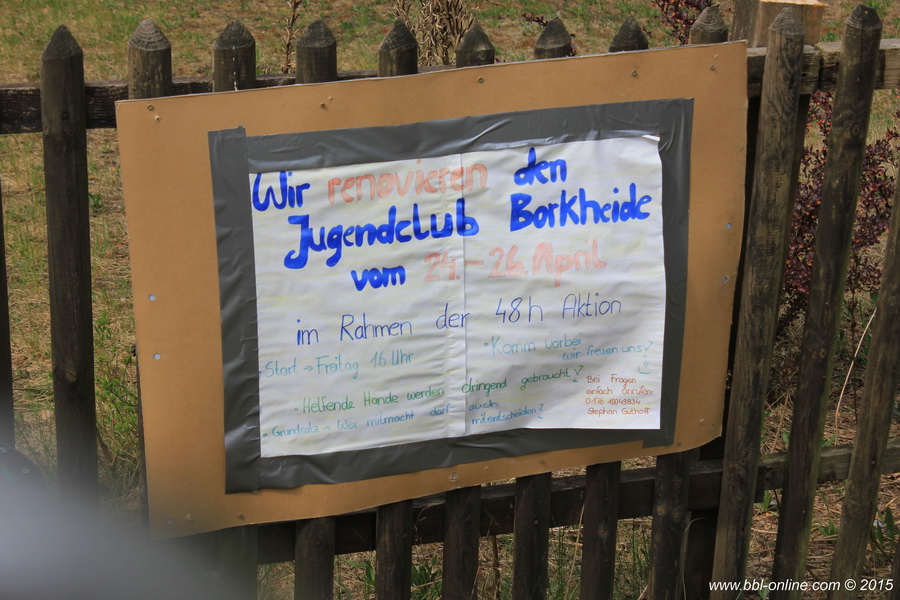 Wir renovieren den
Jugendclub Borkheide
vom 24.-26. April
im Rahmen der 48h Aktion
- Start → Freitag 16 Uhr
- Komm vorbei
wir freuen uns!
- Helfende Hände werden dringend gebraucht!
- Grundsatz → Wer mitmacht darf auch
mitentscheiden!
Bei Fragen
einfach anrufen:
Stephan Güthoff
www.bbl-online.com © 2015